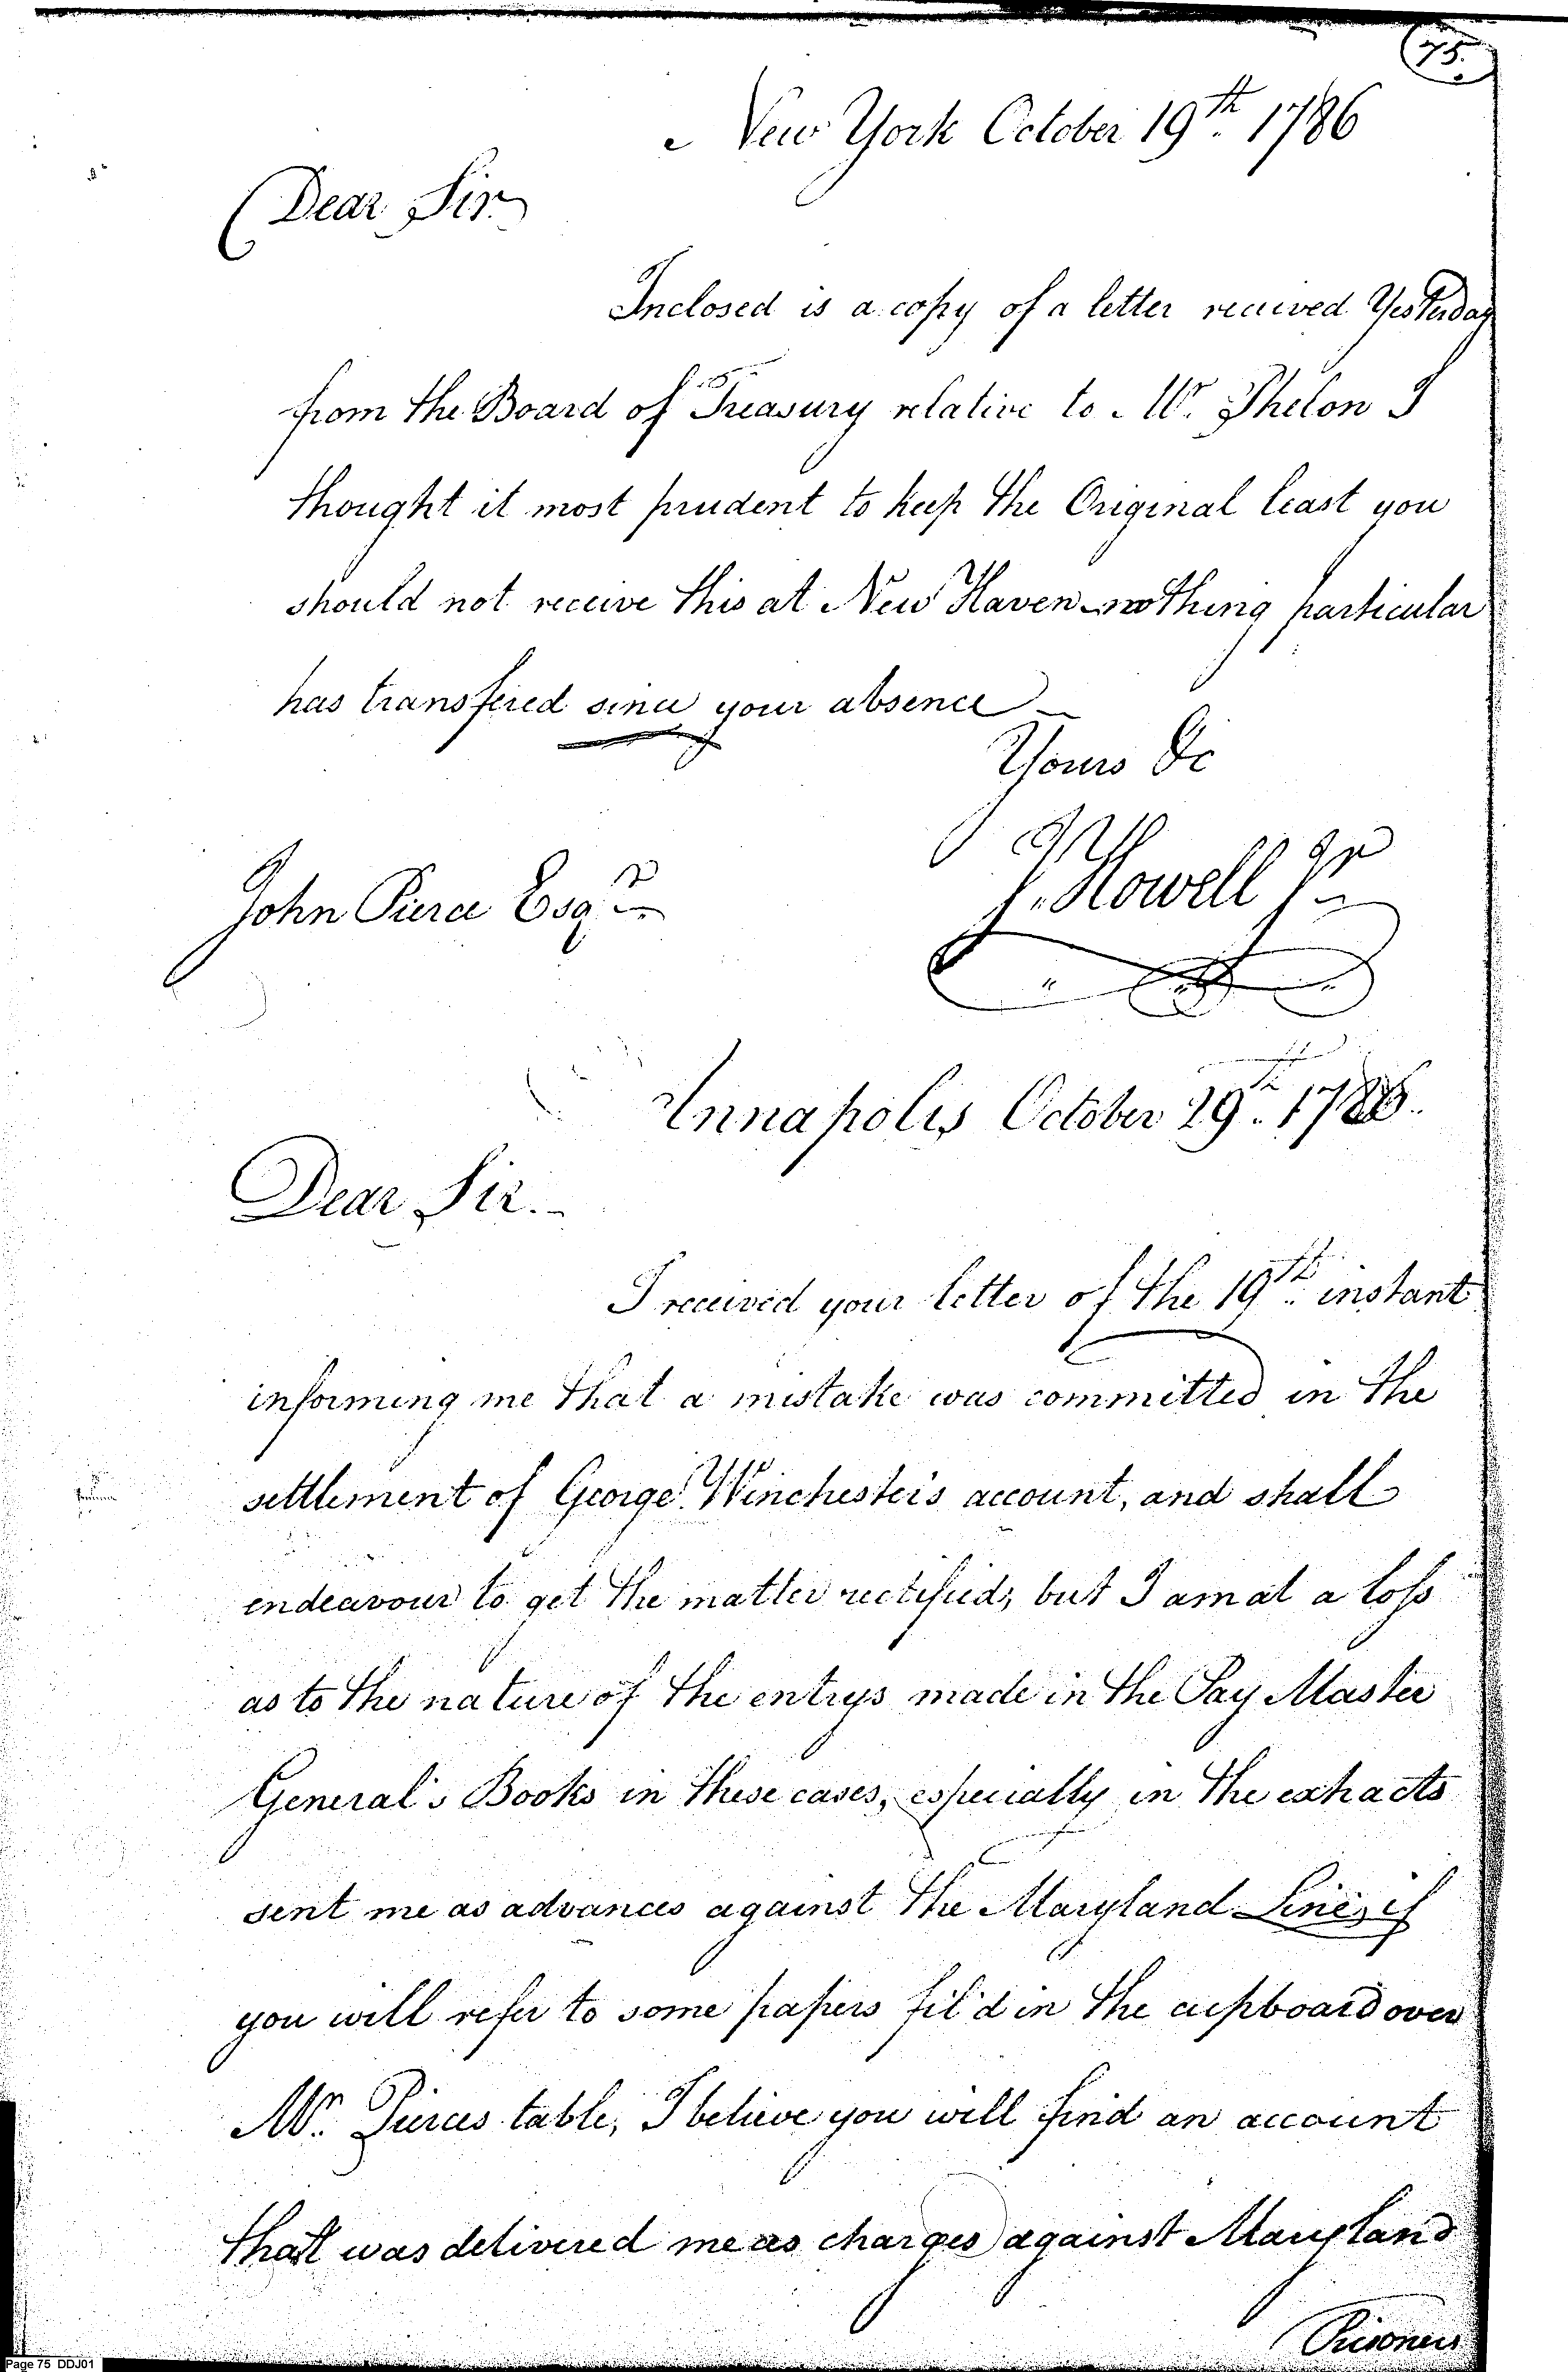 75.
New York October 19th. 1786
Dear Sir
Inclosed is a copy of a letter received Yesterday
from the Board of Treasury relative to Mr. Phelon I
thought it most prudent to keep the Original least you
should not receive this at New Haven nothing particular
has transfired since your absence
Yours &c
John Pierce Esqr
J. Howell Jr
Annapolis October 29th. 1786.
Dear Sir.
I received your letter of the 19th. instant
informing me that a mistake was committed in the
settlement of George Winchester's account, and shall
endeavour to get the matter rectified, but I am at a loss
as to the nature of the entrys made in the Pay Master
General's Books in these cases, especially in the extracts
sent me as advances against the Maryland Line, if
you will refer to some papers fil'd in the cupboard over
Mr. Pierces table, I believe you will find an account
that was delivered me as charges against Maryland
Prisoners
Page 75 DDJ01